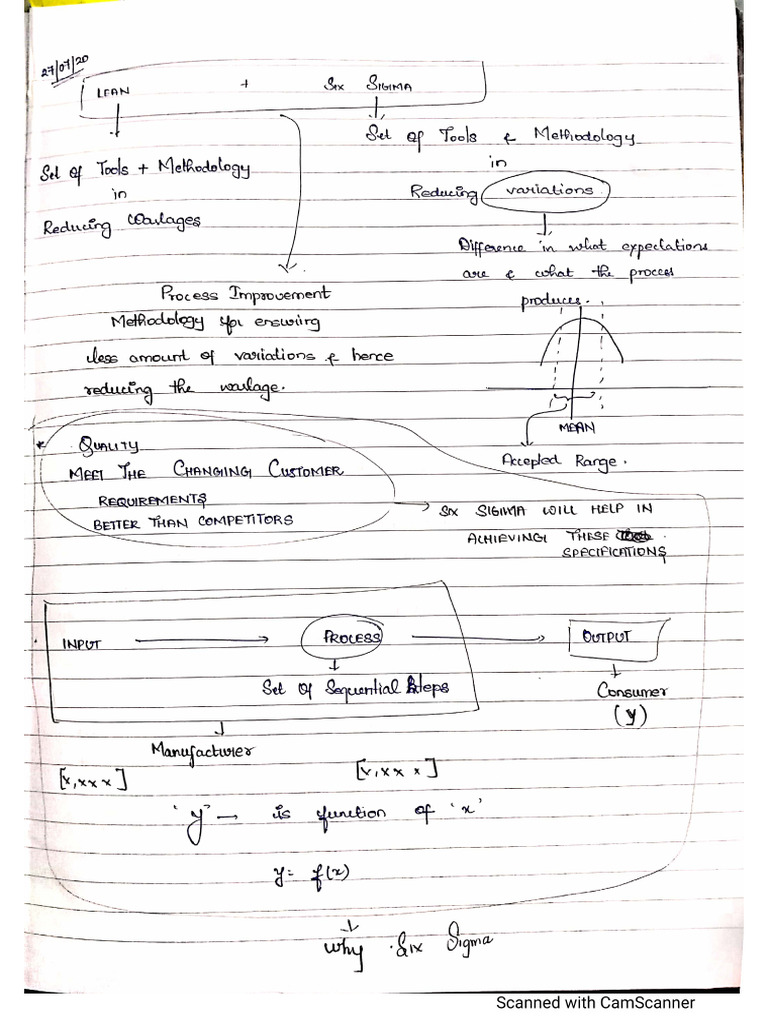 27/07/20
LEAN + SIX SIGMA
Set of Tools + Methodology
in
Reducing Wastages
Set of Tools & Methodology
in
Reducing variations
Difference in what expectations
are & what the process
produces.
MEAN
Accepted Range.
Process Improvement
Methodology for ensuring
less amount of variations & hence
reducing the wastage.
* QUALITY
MEET THE CHANGING CUSTOMER
REQUIREMENTS
BETTER THAN COMPETITORS
SIX SIGMA WILL HELP IN
ACHIEVING THESE
SPECIFICATIONS
INPUT PROCESS OUTPUT
Set of Sequential Steps
Consumer
(y)
Manufacturer
[x, x x x] [x, x x x]
'y' → is function of 'x'
y = f(x)
Why Six Sigma
Scanned with CamScanner